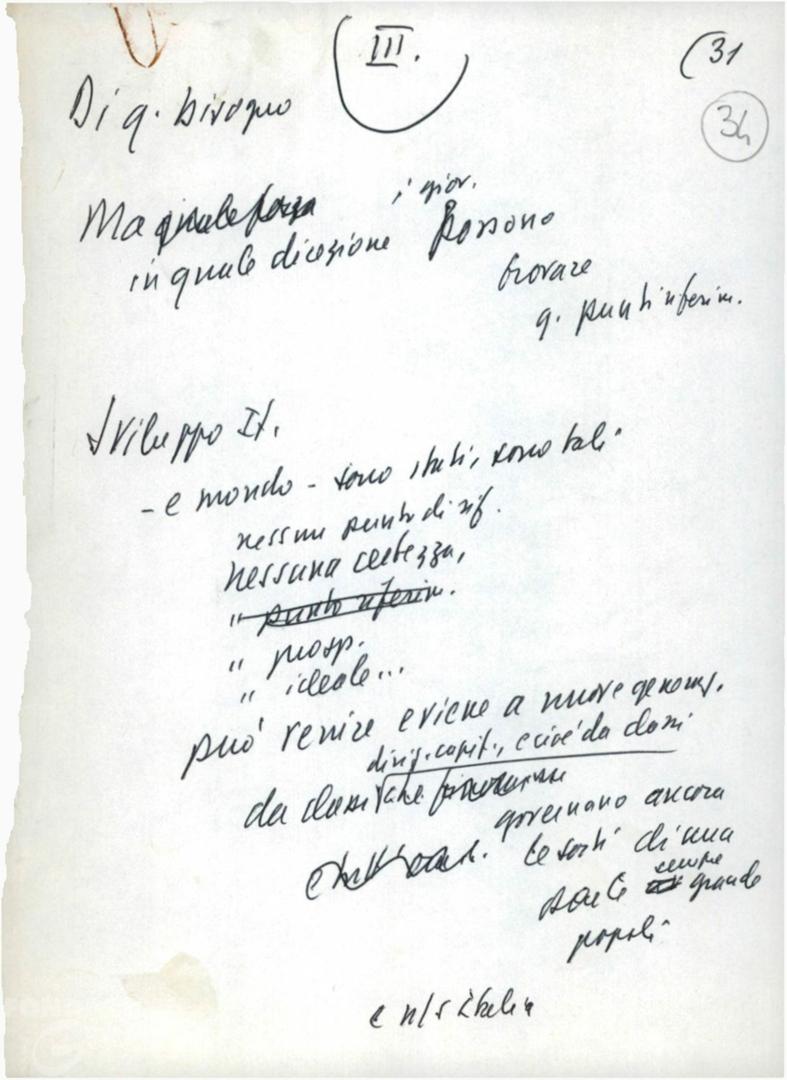 III.
(31
34
Di q. bisogno
i giov.
Ma quale forza
in quale direzione possono
trovare
q. punti riferim.
Sviluppo It.
- e mondo - sono stati, sono tali
nessun punto di rif.
nessuna certezza,
" punto riferim.
" prosp.
" ideale...
può venire e viene a nuove generaz.
dirig. capit., e cioè da classi
da classi che
governano ancora
le sorti di una
parte sempre grande
popoli
e n/s Italia